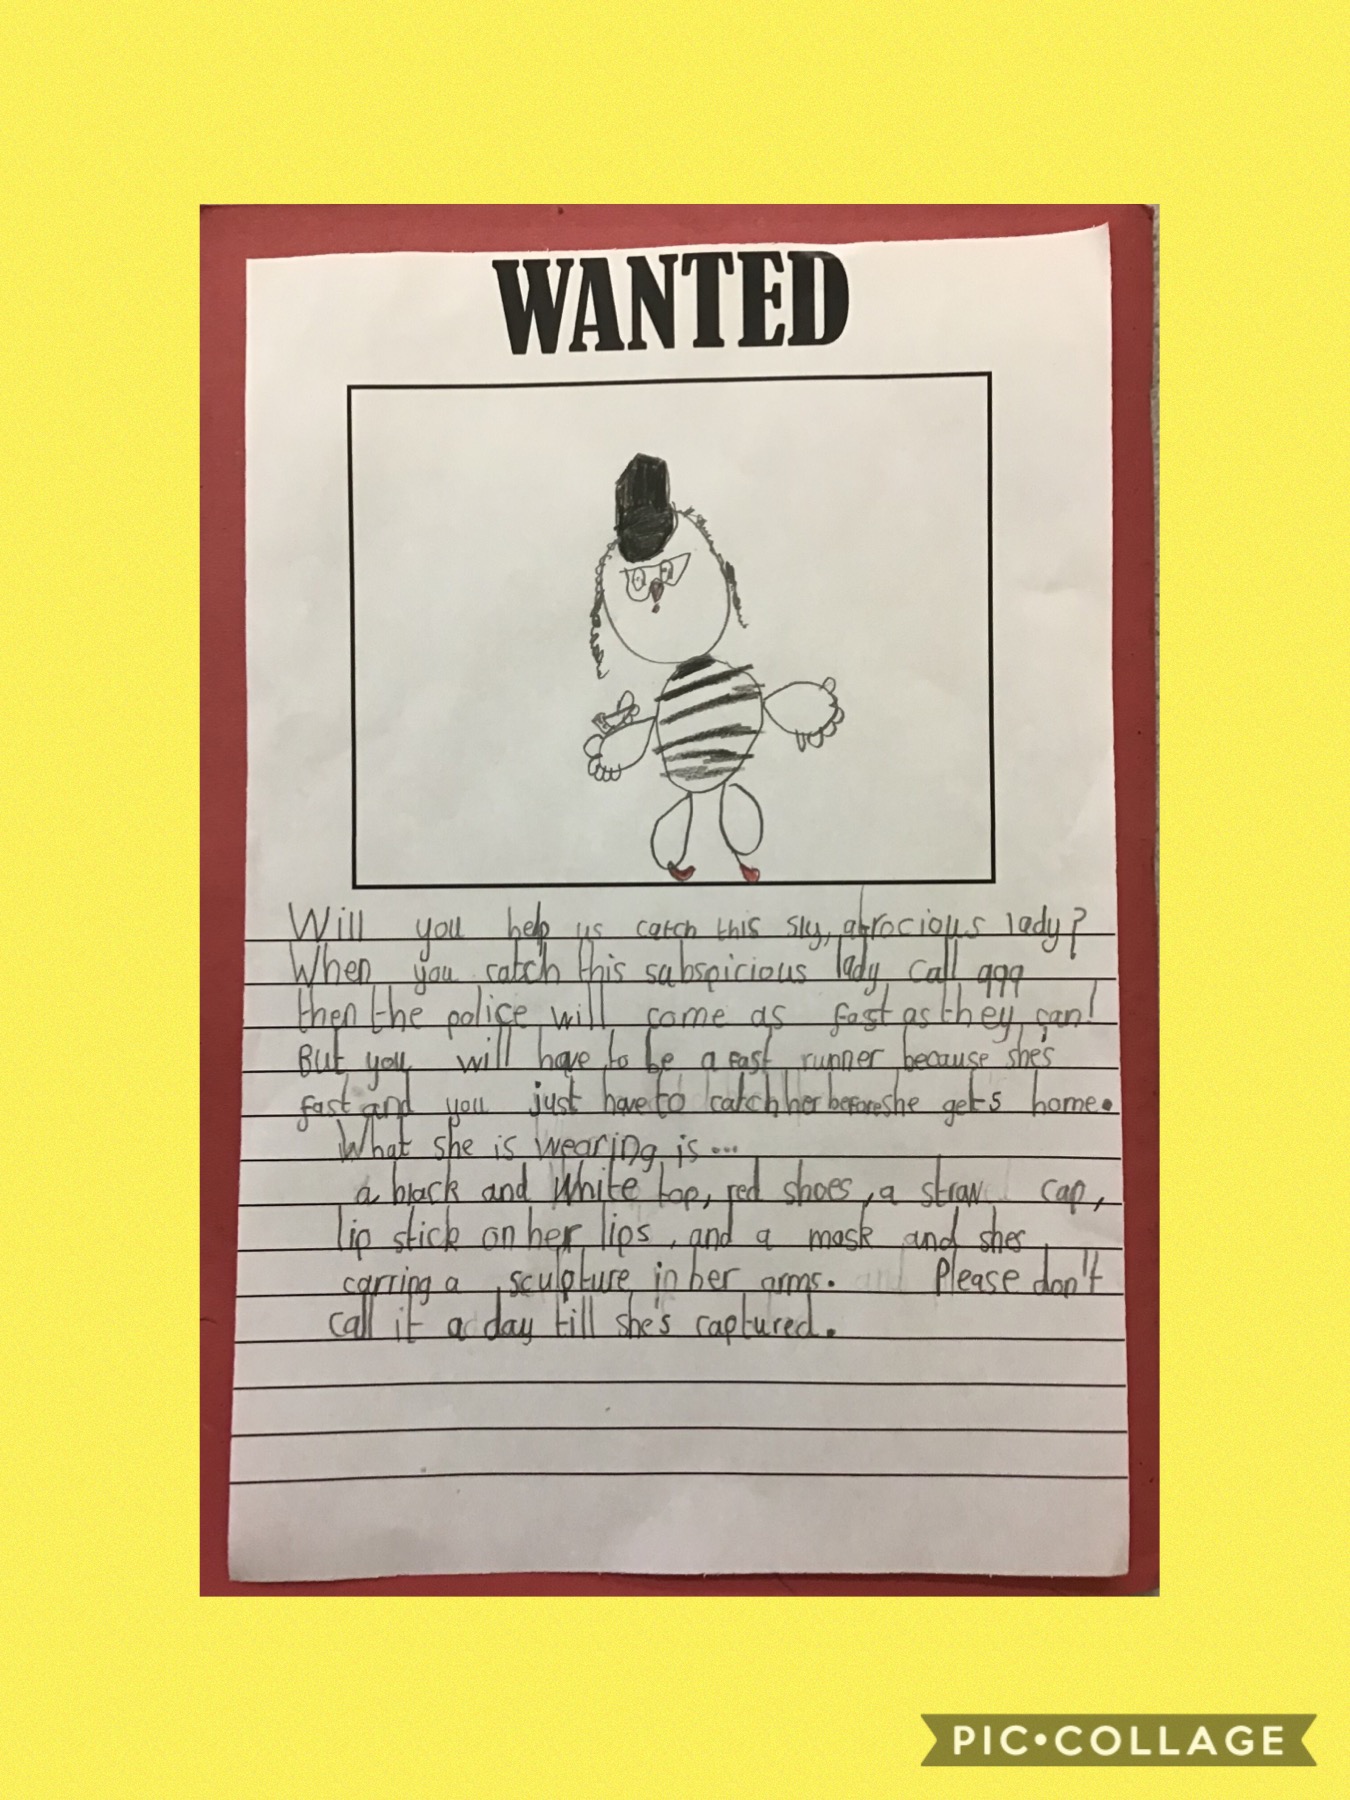 WANTED
Will you help us catch this sly, atrocious lady?
When you catch this subspicious lady call 999
then the police will come as fast as they can!
But you will have to be a fast runner because she's
fast and you just have to catch her before she gets home.
What she is wearing is...
a black and white top, red shoes, a straw cap,
lip stick on her lips, and a mask and shes
carring a sculpture in her arms. Please don't
call it a day till she's captured.
PIC•COLLAGE